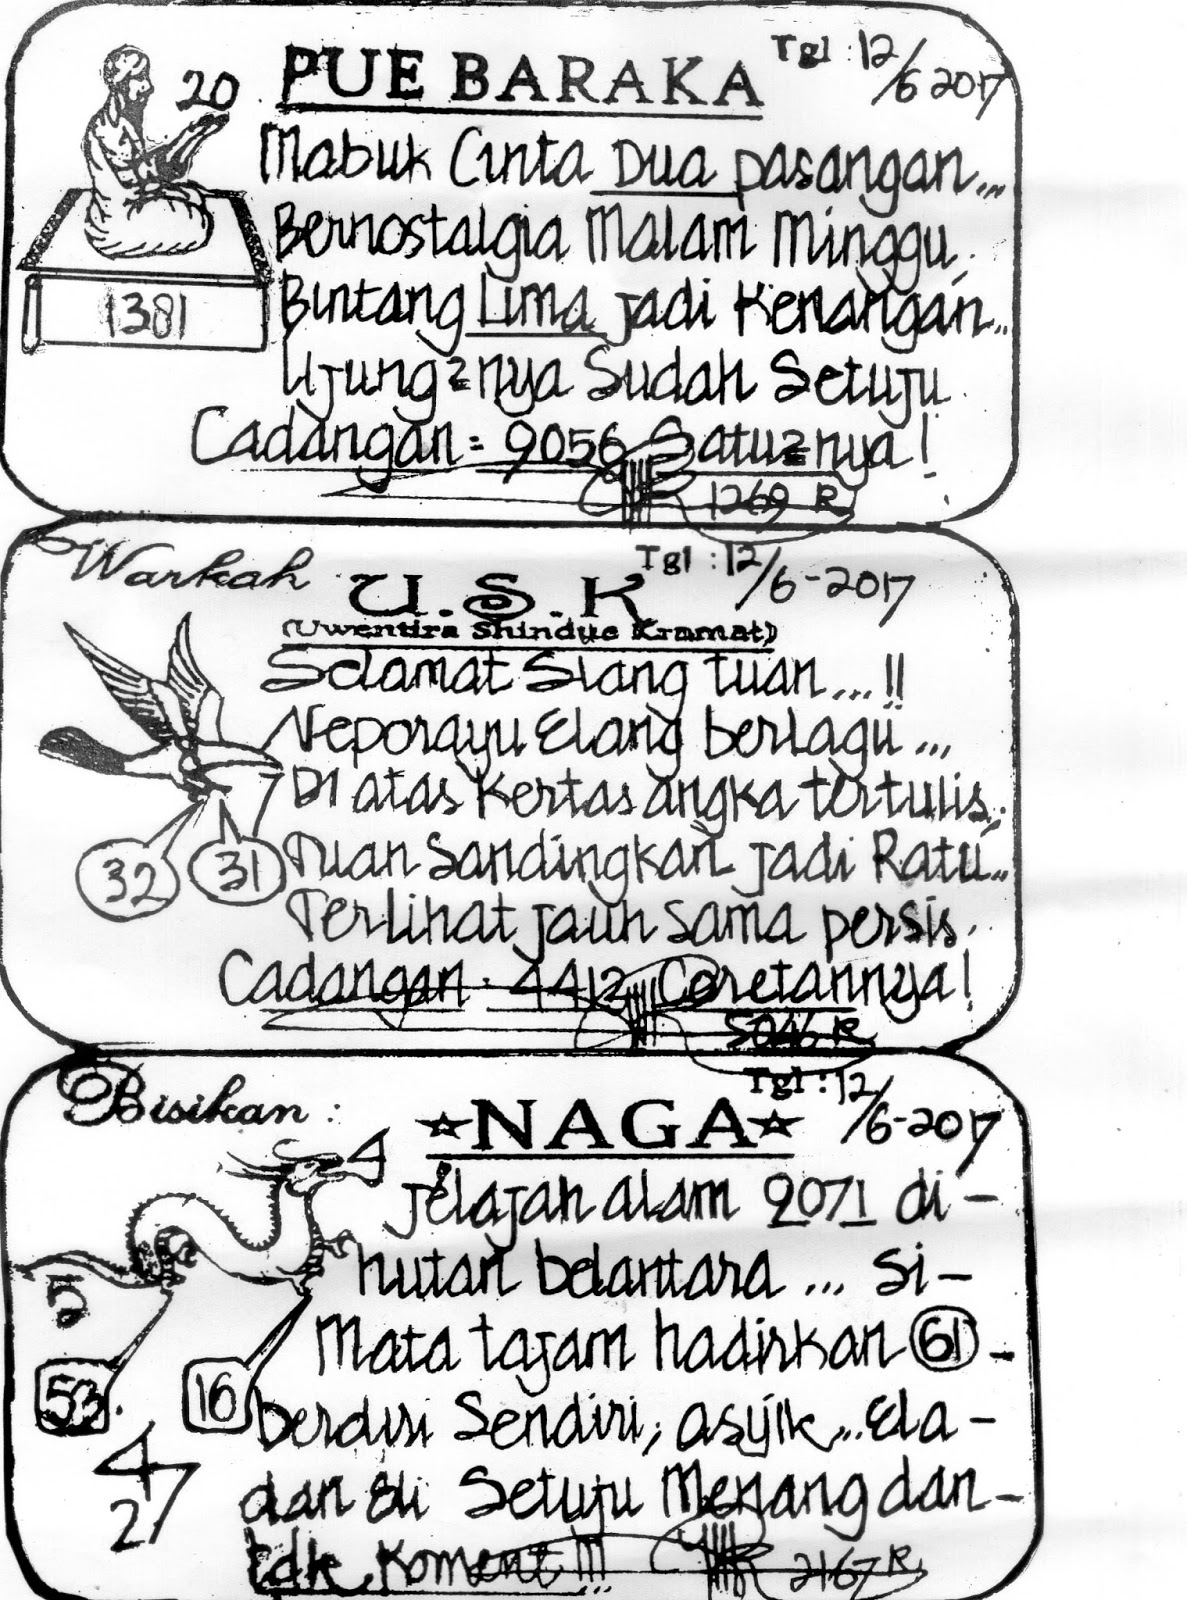 Tgl : 12/6 2017
20 PUE BARAKA
Mabuk Cinta Dua pasangan...
Bernostalgia Malam Minggu,
1381
Bintang Lima jadi Kenangan...
Ujung2nya Sudah Setuju
Cadangan = 9056 Satu2nya!
1269 R
Warkah U.S.K Tgl : 12/6-2017
(Uwentira Shindue Kramat)
Selamat Siang tuan...!!
Neporayu Elang berlagu...
Di atas Kertas angka tertulis,
32 31
Tuan Sandingkan jadi Ratu...
Terlihat jauh Sama persis.
Cadangan . 4412 Coretannya!
5046 R
Bisikan : ☆NAGA☆ Tgl : 12/6-2017
Jelajah alam 2071 di -
hutan belantara ... Si -
5
Mata tajam hadirkan 61 -
53. 16
berdiri Sendiri, asyik... Ela -
4
27
dan Eli Setuju Menang dan -
tdk Koment !!!
2167 R